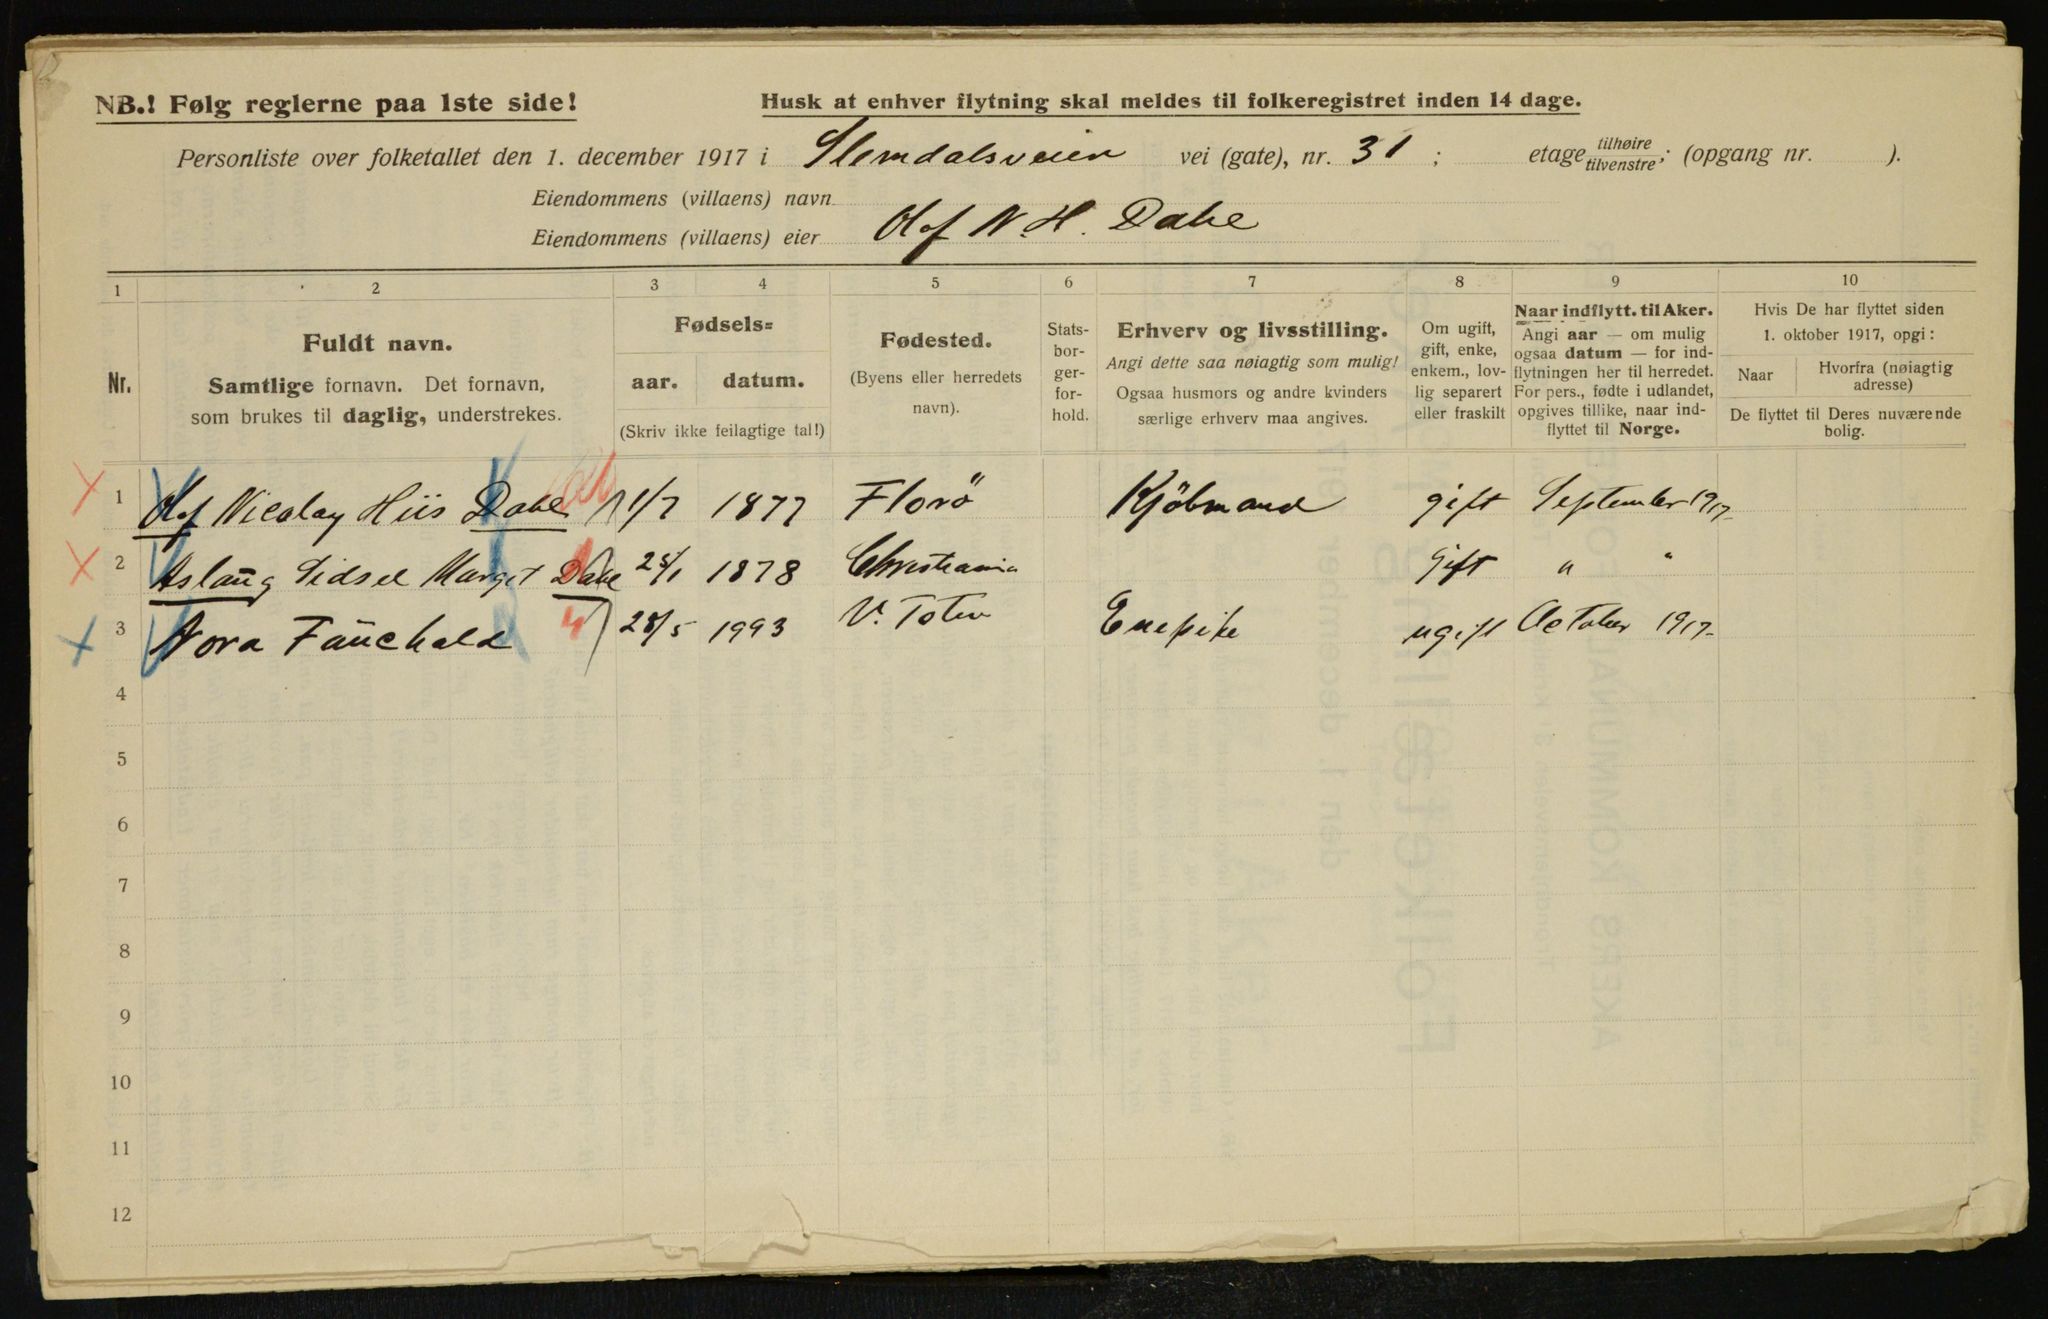 NB.! Følg reglerne paa 1ste side!
Husk at enhver flytning skal meldes til folkeregistret inden 14 dage.
Personliste over folketallet den 1. december 1917 i Slemdalsveien vei (gate), nr. 31 ; etage tilhøire tilvenstre ; (opgang nr. ).
Eiendommens (villaens) navn
Eiendommens (villaens) eier Olof N. H. Dahe
1 2 3 4 5 6 7 8 9 10
Nr.
Fuldt navn.
Samtlige fornavn. Det fornavn,
som brukes til daglig, understrekes.
Fødsels=
aar. datum.
(Skriv ikke feilagtige tal!)
Fødested.
(Byens eller herredets
navn).
Stats-
bor-
ger-
for-
hold.
Erhverv og livsstilling.
Angi dette saa nøiagtig som mulig!
Ogsaa husmors og andre kvinders
særlige erhverv maa angives.
Om ugift,
gift, enke,
enkem., lov-
lig separert
eller fraskilt
Naar indflytt. til Aker.
Angi aar — om mulig
ogsaa datum — for ind-
flytningen her til herredet.
For pers., fødte i udlandet,
opgives tillike, naar ind-
flyttet til Norge.
Hvis De har flyttet siden
1. oktober 1917, opgi:
Naar
Hvorfra (nøiagtig
adresse)
De flyttet til Deres nuværende
bolig.
1 Olof Nicolay Hiis Dahe 1/7 1877 Florö Kjöbmand gift September 1917-
2 Aslaug Sidsel Margit Dahe 28/1 1878 Christiania gift " "
3 Nora Fauchald 28/5 1993 V. Toten Enepike ugift October 1917-
4
5
6
7
8
9
10
11
12